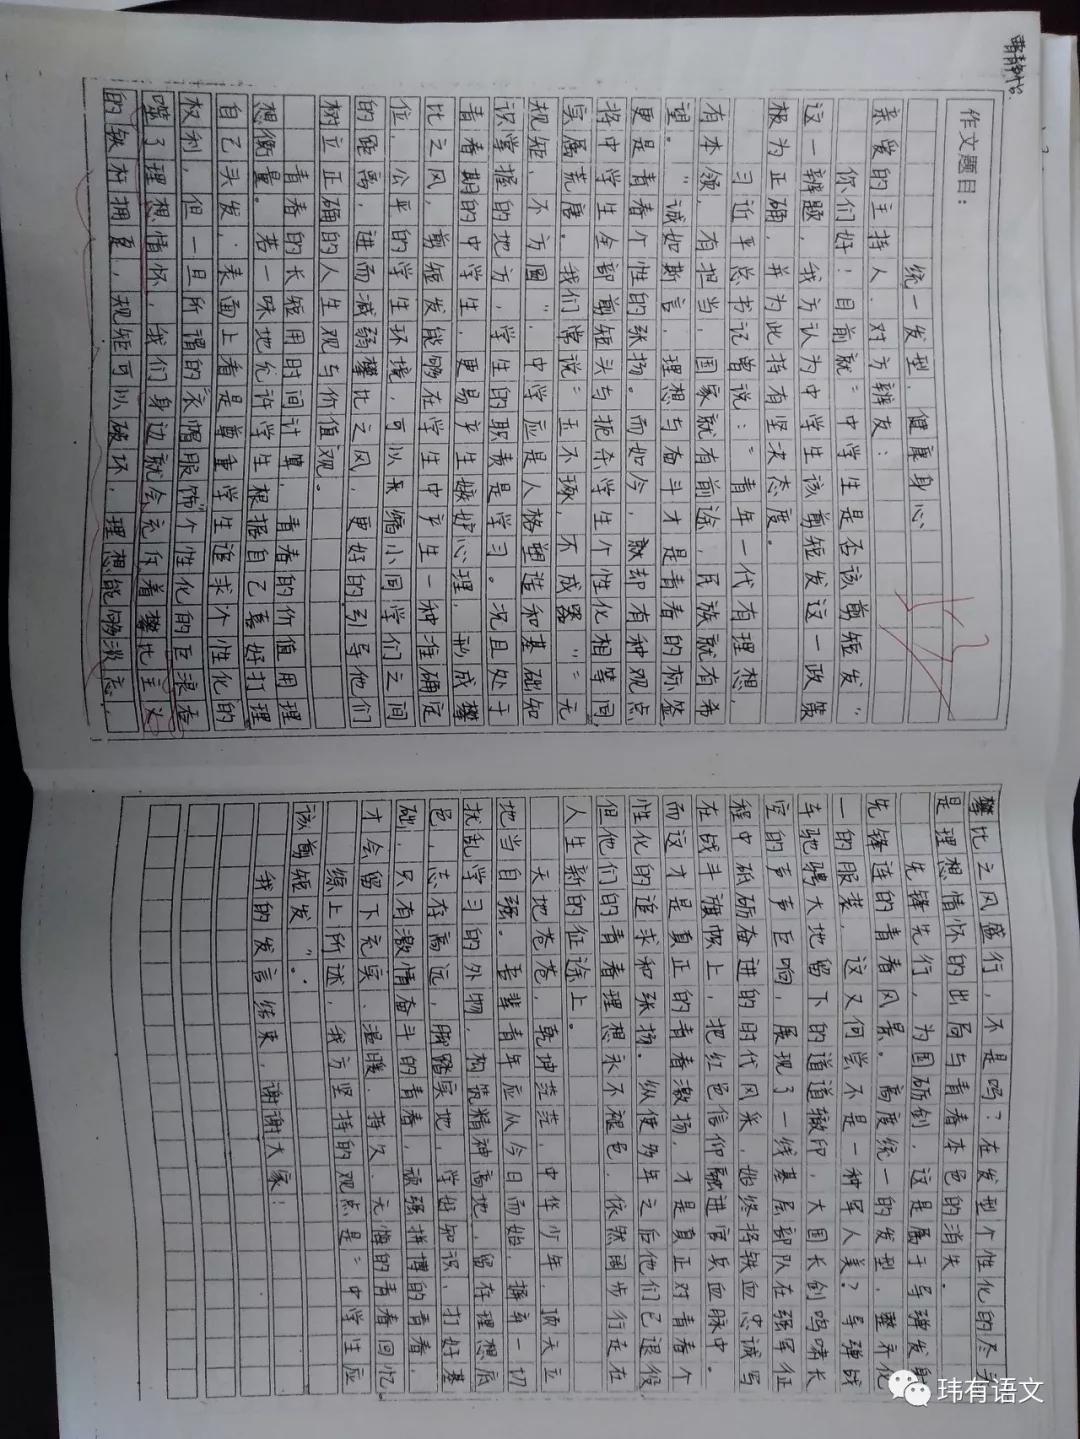 作文题目：
统一发型，健康身心
亲爱的主持人，对方辩友：
你们好！目前就“中学生是否该剪短发”
这一辨题，我方认为中学生该剪短发这一政策
极为正确，并为此持有坚决态度。
习近平总书记曾说：“青年一代有理想，
有本领，有担当，国家就有前途，民族就有希
望。”诚如斯言，理想与奋斗才是青春的标签
更是青春个性的张扬。而如今，就却有种观点
将中学生全部剪短头与扼杀学生个性化相等同，
实属荒唐。我们常说“玉不琢，不成器”“无
规矩，不方圆”，中学应是人格塑造和基础知
识掌握的地方，学生的职责是学习。况且处于
青春期的中学生，更易产生嫉妒心理，形成攀
比之风，剪短发能够在学生中产生一种准确定
位，公平的学生环境，可以缩小同学们之间
的距离，进而减弱攀比之风，更好的引导他们
树立正确的人生观与价值观。
青春的长短用时间计算，青春的价值用理
想衡量。若一味地允许学生根据自己喜好打理
自己头发，表面上看是尊重学生追求个性化的
权利，但一旦所谓的“衣帽服饰”个性化的巨浪吞
噬了理想情怀，我们身边就会充斥着攀比主义
的铁杆拥趸，规矩可以破坏，理想能够淡忘，
攀比之风盛行，不是吗？在发型个性化的尽头
是理想情怀的出局与青春本色的消失。
先锋先行，为国砺剑，这是属于导弹发射
先锋连的青春风景。高度统一的发型，整齐化
一的服装，这又何尝不是一种军人美？导弹战
车驰骋大地留下的道道辙印，大国长剑鸣啸长
空的声声巨响，展现了一线基层部队在强军征
程中砥砺奋进的时代风采，始终将铁血忠诚写
在战斗旗帜上，把红色信仰融进官兵血脉中。
而这才是真正的青春激扬，才是真正对青春个
性化的追求和张扬。纵使多年之后他们已退役
但他们的青春理想永不褪色，依然阔步行走在
人生新的征途上。
天地苍苍，乾坤茫茫，中华少年，顶天立
地当自强。吾辈青年应从今日而始，摒弃一切
扰乱学习的外物，构筑精神高地，留存理想底
色，志存高远，脚踏实地，学好知识，打好基
础，只有激情奋斗的青春，顽强拼搏的青春，
才会留下充实、温暖、持久、无悔的青春回忆。
综上所述，我方坚持的观点是“中学生应
该剪短发”。
我的发言结束，谢谢大家！
玮有语文